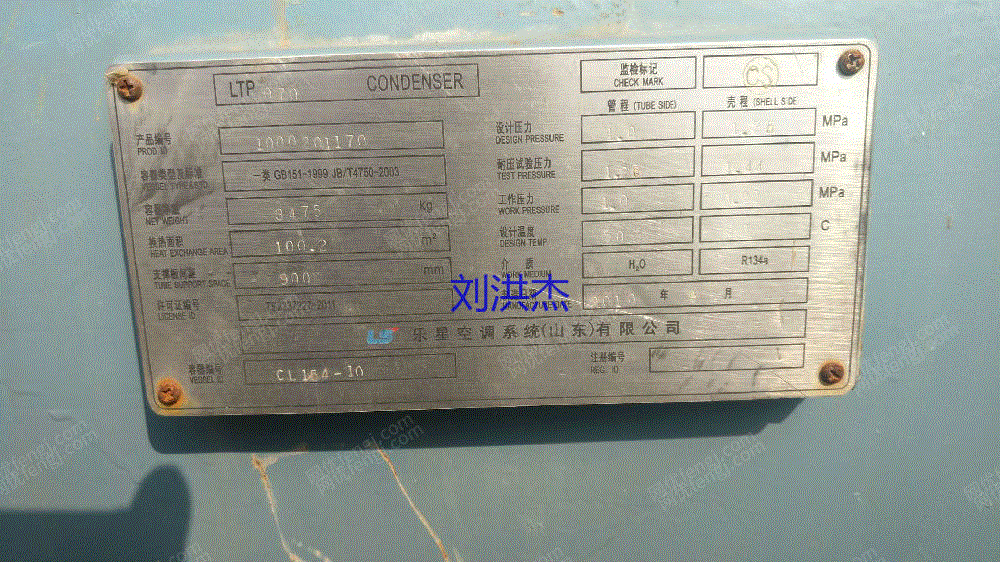 LTP 270 CONDENSER
监检标记
CHECK MARK
CS
管程 (TUBE SIDE)
壳程 (SHELL SIDE
产品编号
PROD ID
1000201170
设计压力
DESIGN PRESSURE
1.0
MPa
容器类型及标准
VESSEL TYPE & STD
一类 GB151-1999 JB/T4750-2003
耐压试验压力
TEST PRESSURE
MPa
容器净重
NET WEIGHT
3475 Kg
工作压力
WORK PRESSURE
1.0
MPa
换热面积
HEAT EXCHANGE AREA
100.2 m²
设计温度
DESIGN TEMP
C
支撑板间距
TUBE SUPPORT SPACE
900 mm
介质
WORK MEDIUM
H₂O
R134a
许可证编号
LICENSE ID
刘洪杰
2010 年 月
LS 乐星空调系统(山东)有限公司
容器编号
VESSEL ID
CL164-10
注册编号
REG. ID